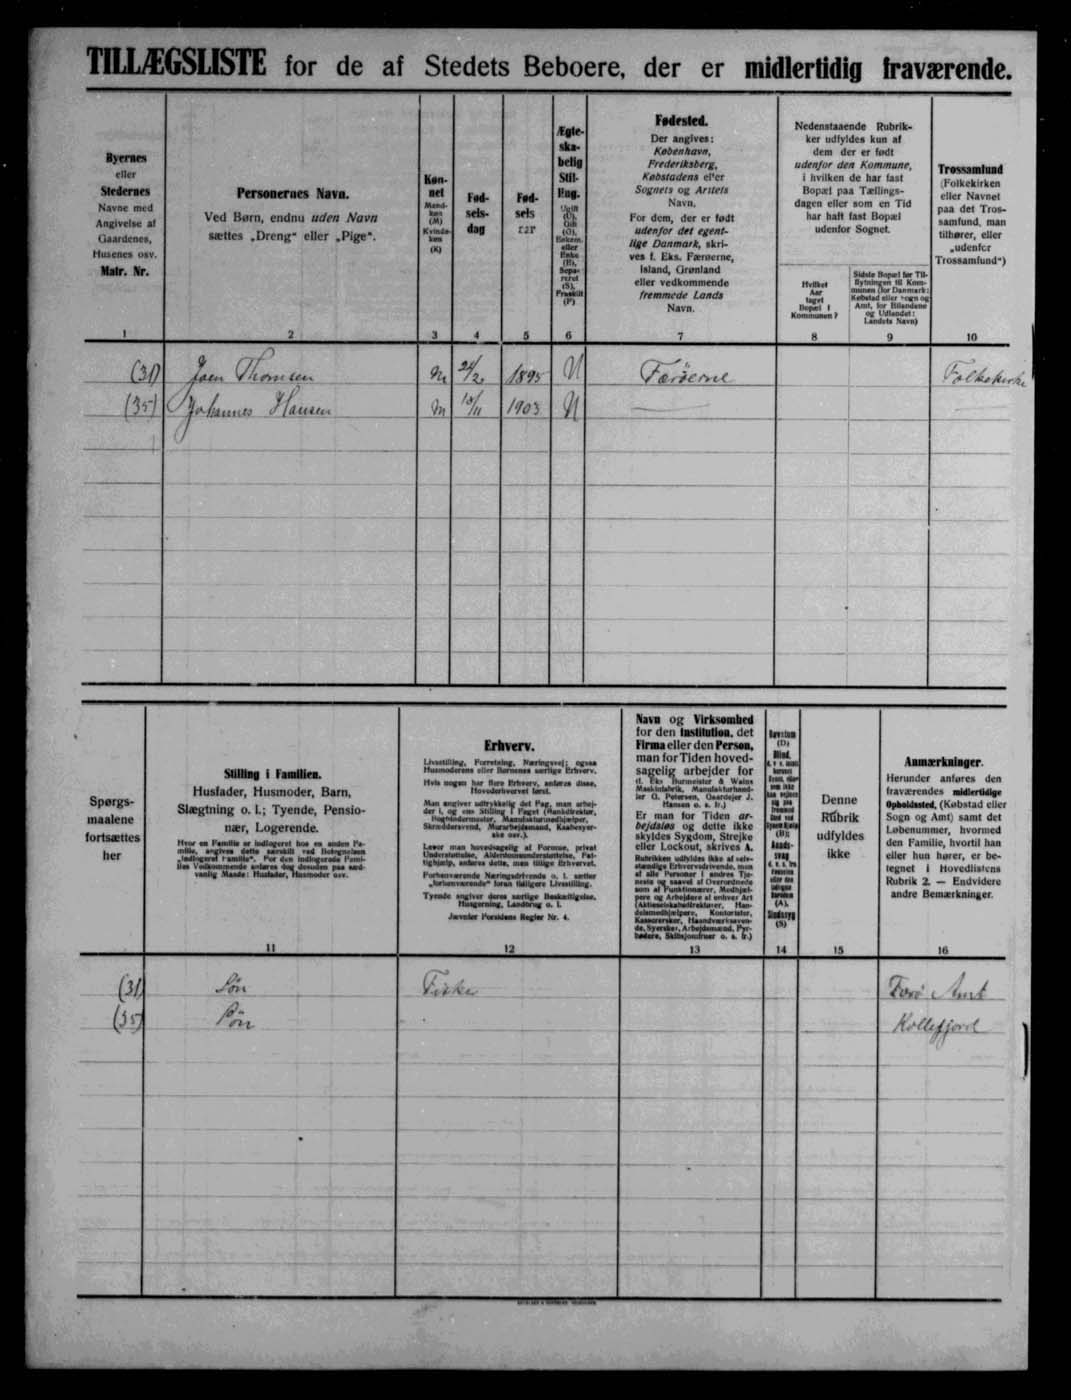 TILLÆGSLISTE for de af Stedets Beboere, der er midlertidig fraværende.
Byernes
eller
Stedernes
Navne med
Angivelse af
Gaardenes,
Husenes osv.
Matr. Nr.
1
Personernes Navn.
Ved Børn, endnu uden Navn
sættes „Dreng“ eller „Pige“.
2
Køn-
net
Mand-
køn
(M)
Kvinde-
køn
(K)
3
Fød-
sels-
dag
4
Fød-
sels
aar
5
Ægte-
ska-
belig
Stil-
ling.
Ugift
(U),
Gift
(G),
Enkem.
eller
Enke
(E),
Sepa-
reret
(S),
Fraskilt
(F)
6
Fødested.
Der angives:
København,
Frederiksberg,
Købstadens eller
Sognets og Amtets
Navn.
For dem, der er født
udenfor det egent-
lige Danmark, skri-
ves f. Eks. Færøerne,
Island, Grønland
eller vedkommende
fremmede Lands
Navn.
7
Nedenstaaende Rubrik-
ker udfyldes kun af
dem der er født
udenfor den Kommune,
i hvilken de har fast
Bopæl paa Tællings-
dagen eller som en Tid
har haft fast Bopæl
udenfor Sognet.
Hvilket
Aar
taget
Bopæl i
Kommunen?
8
Sidste Bopæl før Til-
flytningen til Kom-
munen (for Danmark:
Købstad eller Sogn og
Amt, for Bilandene
og Udlandet:
Landets Navn)
9
Trossamfund
(Folkekirken
eller Navnet
paa det Tros-
samfund, man
tilhører, eller
„udenfor
Trossamfund“)
10
(31) Joen Thomsen M 24/2 1895 U Færøerne Folkekirke
(35) Johannes Hansen M 13/11 1903 U
Spørgs-
maalene
fortsættes
her
Stilling i Familien.
Husfader, Husmoder, Barn,
Slægtning o. l.; Tyende, Pensio-
nær, Logerende.
Hvor en Familie er indlogeret hos en anden Fa-
milie, angives dette særskilt ved Betegnelsen
„indlogeret Familie“. For den indlogerede Fami-
lies Vedkommende anføres dog desuden paa sæd-
vanlig Maade: Husfader, Husmoder osv.
11
Erhverv.
Livsstilling, Forretning, Næringsvej; ogsaa
Husmoderens eller Børnenes særlige Erhverv.
Hvis nogen har flere Erhverv, anføres disse,
Hovederhvervet først.
Man angiver udtrykkelig det Fag, man arbej-
der i, og ens Stilling i Faget (Bankdirektør,
Bogbindermester, Manufakturmedhjælper,
Skræddersvend, Murarbejdsmand, Kasbesyer-
ske osv.).
Lever man hovedsagelig af Formue, privat
Understøttelse, Alderdomsunderstøttelse, Fat-
tighjælp, anføres dette, men tillige Erhvervet.
Forhenværende Næringsdrivende o. l. sætter
„forhenværende“ foran tidligere Livsstilling.
Tyende angiver deres særlige Beskæftigelse,
Husgerning, Landbrug o. l.
Jævnfør Forsidens Regler Nr. 4.
12
Navn og Virksomhed
for den Institution, det
Firma eller den Person,
man for Tiden hoved-
sagelig arbejder for
(f. Eks Burmeister & Wains
Maskinfabrik, Manufakturhand-
ler O. Petersen, Gaardejer J.
Hansen o. s. fr.)
Er man for Tiden ar-
bejdsløs og dette ikke
skyldes Sygdom, Strejke
eller Lockout, skrives A.
Rubrikken udfyldes ikke af selv-
stændige Erhvervsdrivende, men
af alle Personer i andres Tje-
neste og saavel af Overordnede
som af Funktionærer, Medhjæl-
pere og Arbejdere af enhver Art
(Aktieselskabsdirektører, Han-
delsmedhjælpere, Kontorister,
Kassererske, Haandværkssven-
de, Syersker, Arbejdsmænd, Fyr-
bødere, Skibsjomfruer o. s. fr.)
13
Døvstum
(D)
Blind,
(B)
Aands-
svag
(A),
Sindssyg
(S)
14
Denne
Rubrik
udfyldes
ikke
15
Anmærkninger.
Herunder anføres den
fraværendes midlertidige
Opholdssted, (Købstad eller
Sogn og Amt) samt det
Løbenummer, hvormed
den Familie, hvortil han
eller hun hører, er be-
tegnet i Hovedlistens
Rubrik 2. — Endvidere
andre Bemærkninger.
16
(31) Søn Fisker Færø Amt
(35) Søn Kollefjord